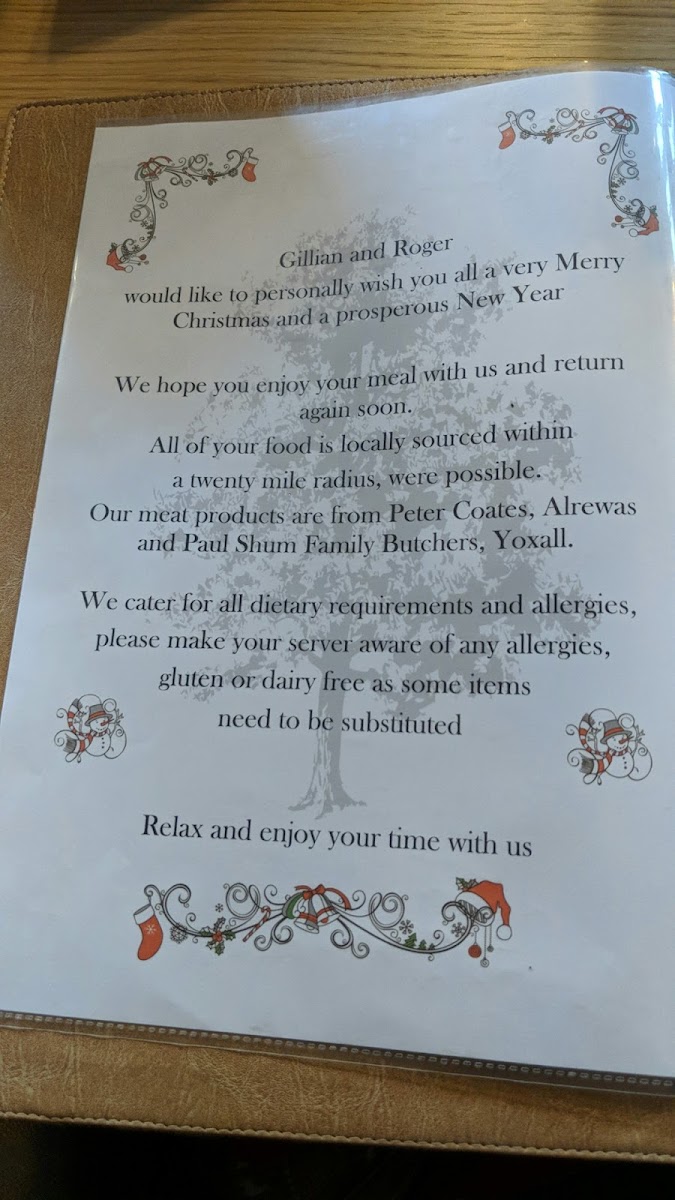 Gillian and Roger
would like to personally wish you all a very Merry
Christmas and a prosperous New Year
We hope you enjoy your meal with us and return
again soon.
All of your food is locally sourced within
a twenty mile radius, were possible.
Our meat products are from Peter Coates, Alrewas
and Paul Shum Family Butchers, Yoxall.
We cater for all dietary requirements and allergies,
please make your server aware of any allergies,
gluten or dairy free as some items
need to be substituted
Relax and enjoy your time with us